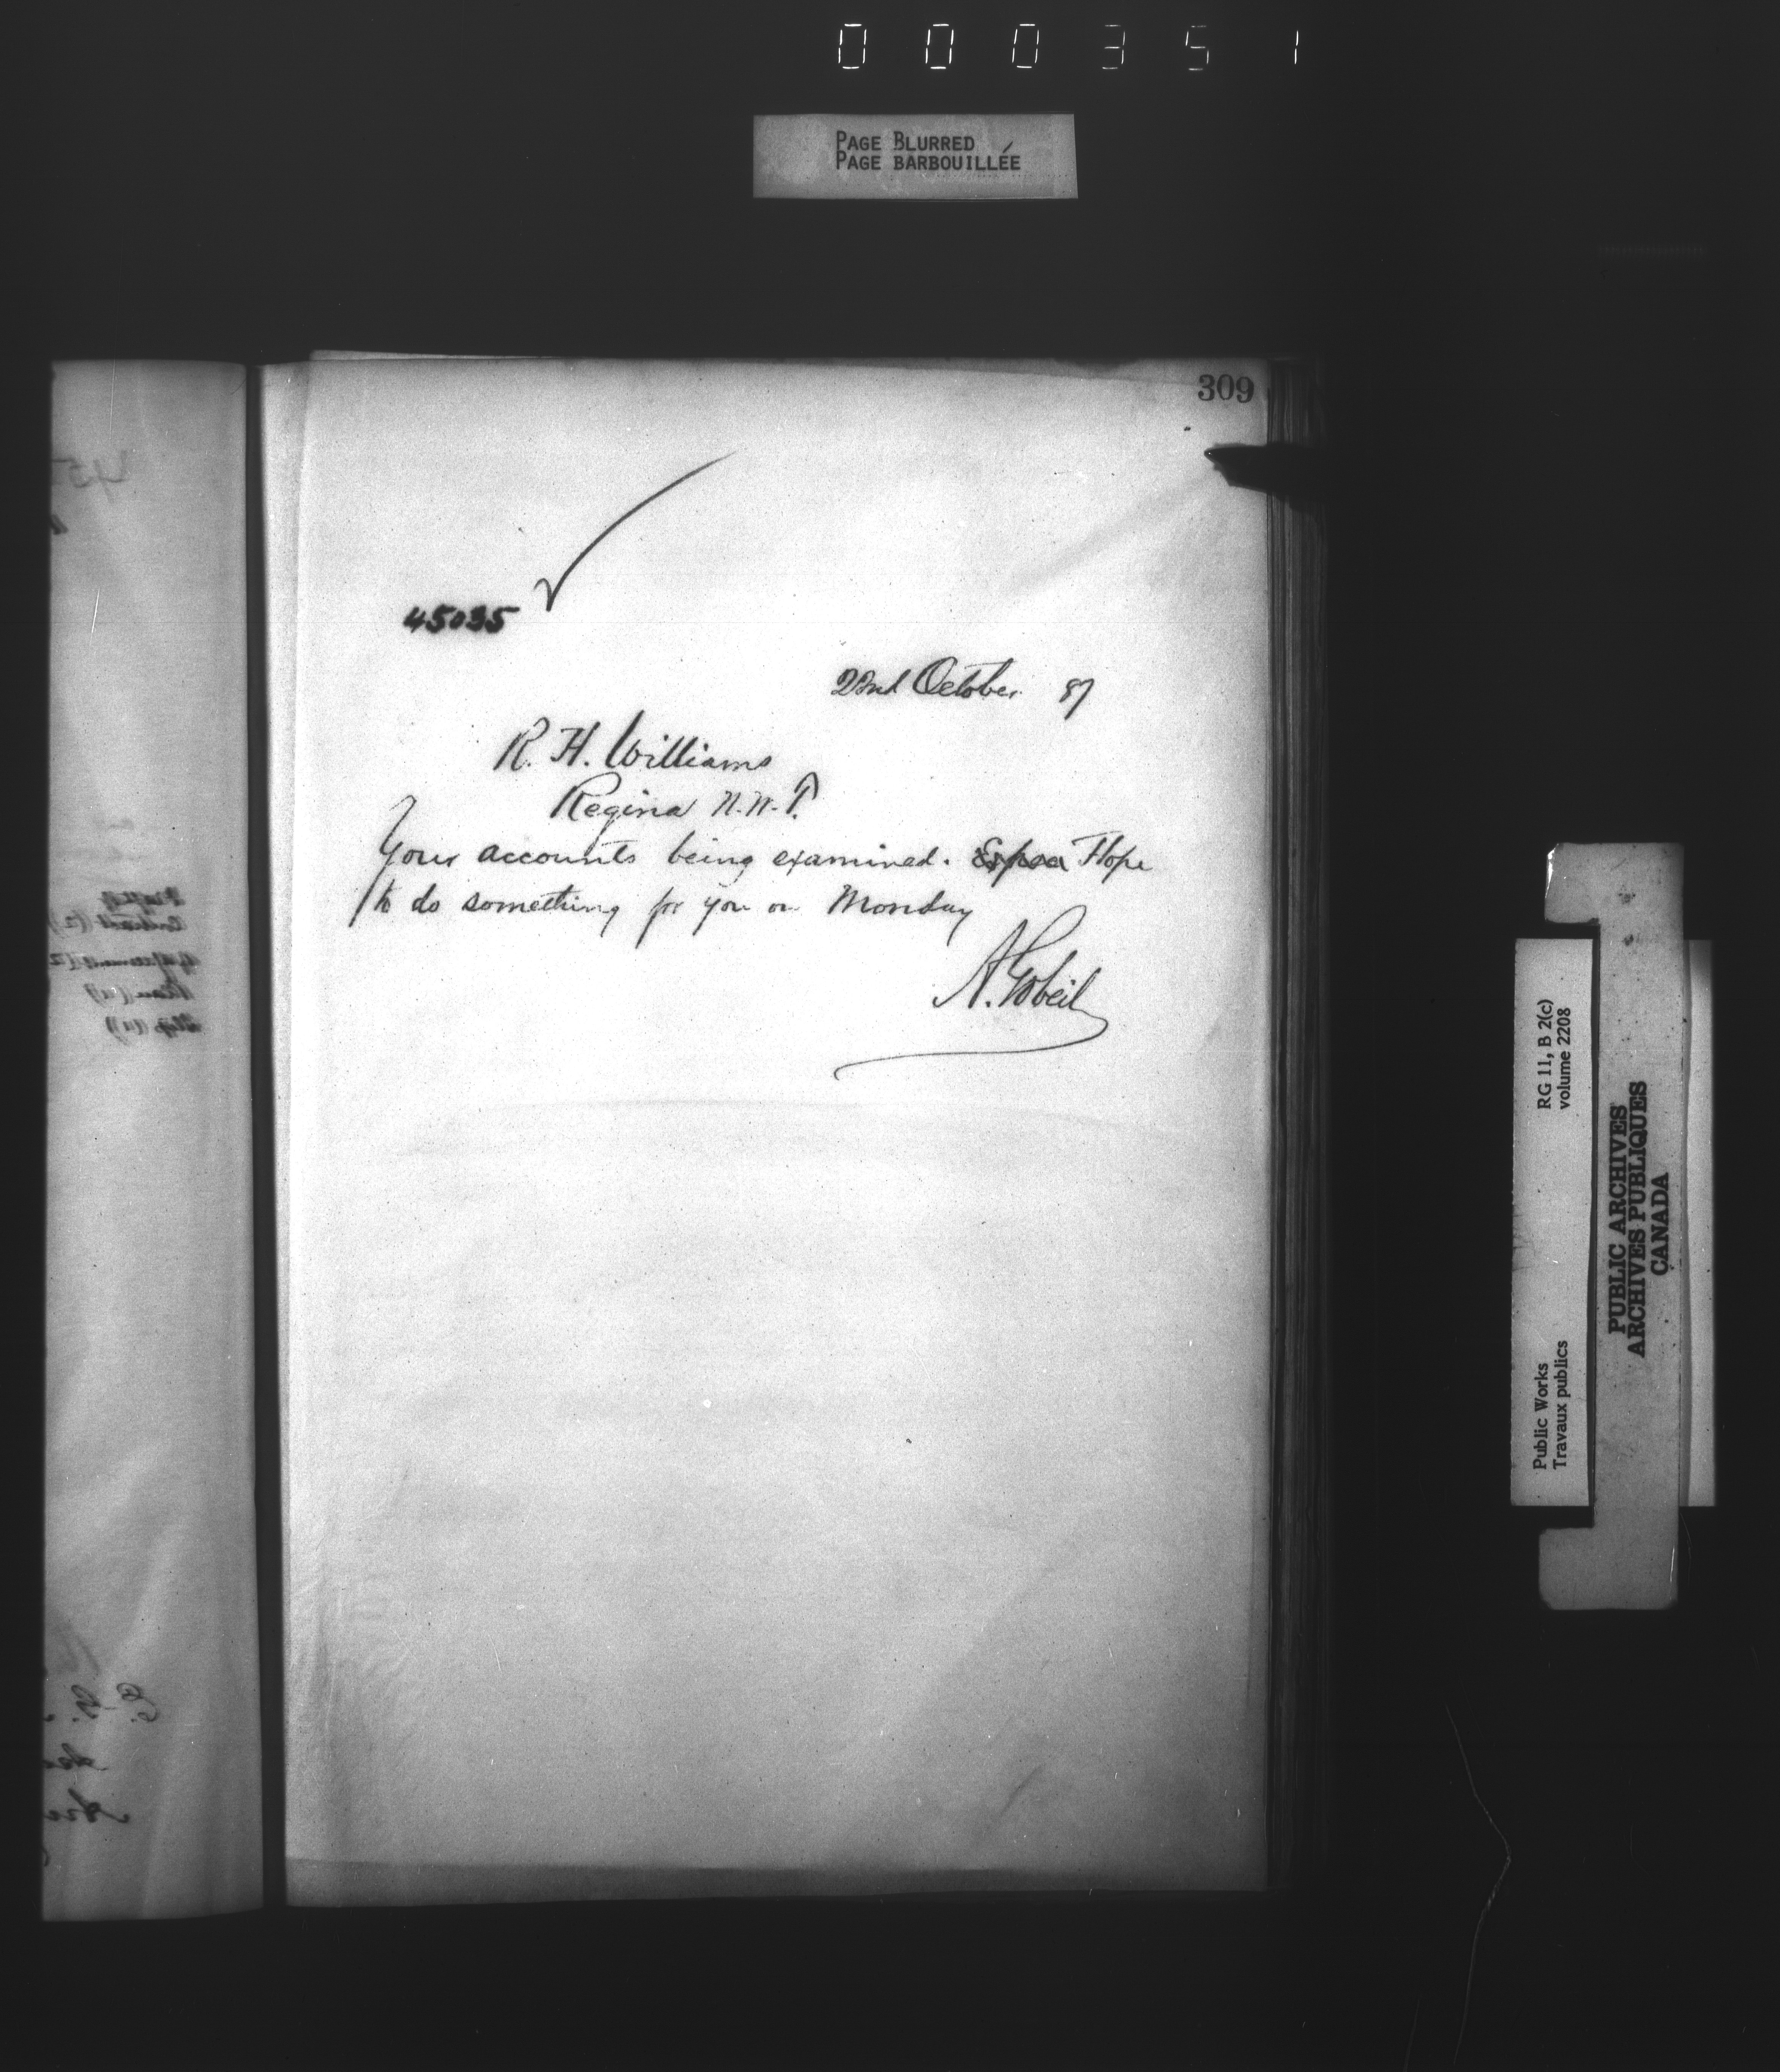 000351
PAGE BLURRED
PAGE BARBOUILLÉE
309
45035
22nd October 87
R. H. Williams
Regina N.W.T.
Your accounts being examined. Hope
to do something for you on Monday
A. Gobeil
RG 11, B 2(c)
volume 2208
Public Works
Travaux publics
PUBLIC ARCHIVES
ARCHIVES PUBLIQUES
CANADA